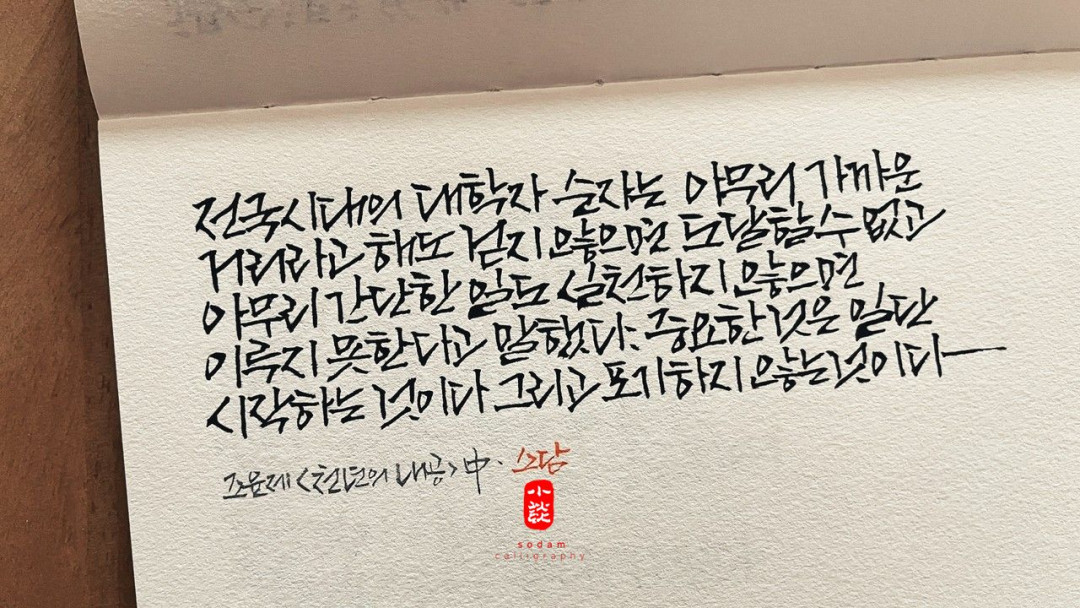 전국시대의 대학자 순자는 아무리 가까운
거리라고 해도 걷지 않으면 도달할수 없고
아무리 간단한 일도 실천하지 않으면
이루지 못한다고 말했다. 중요한 것은 일단
시작하는 것이다 그리고 포기하지 않는것이다
조윤제 <천년의 내공> 中. 소담
小談
sodam
calligraphy